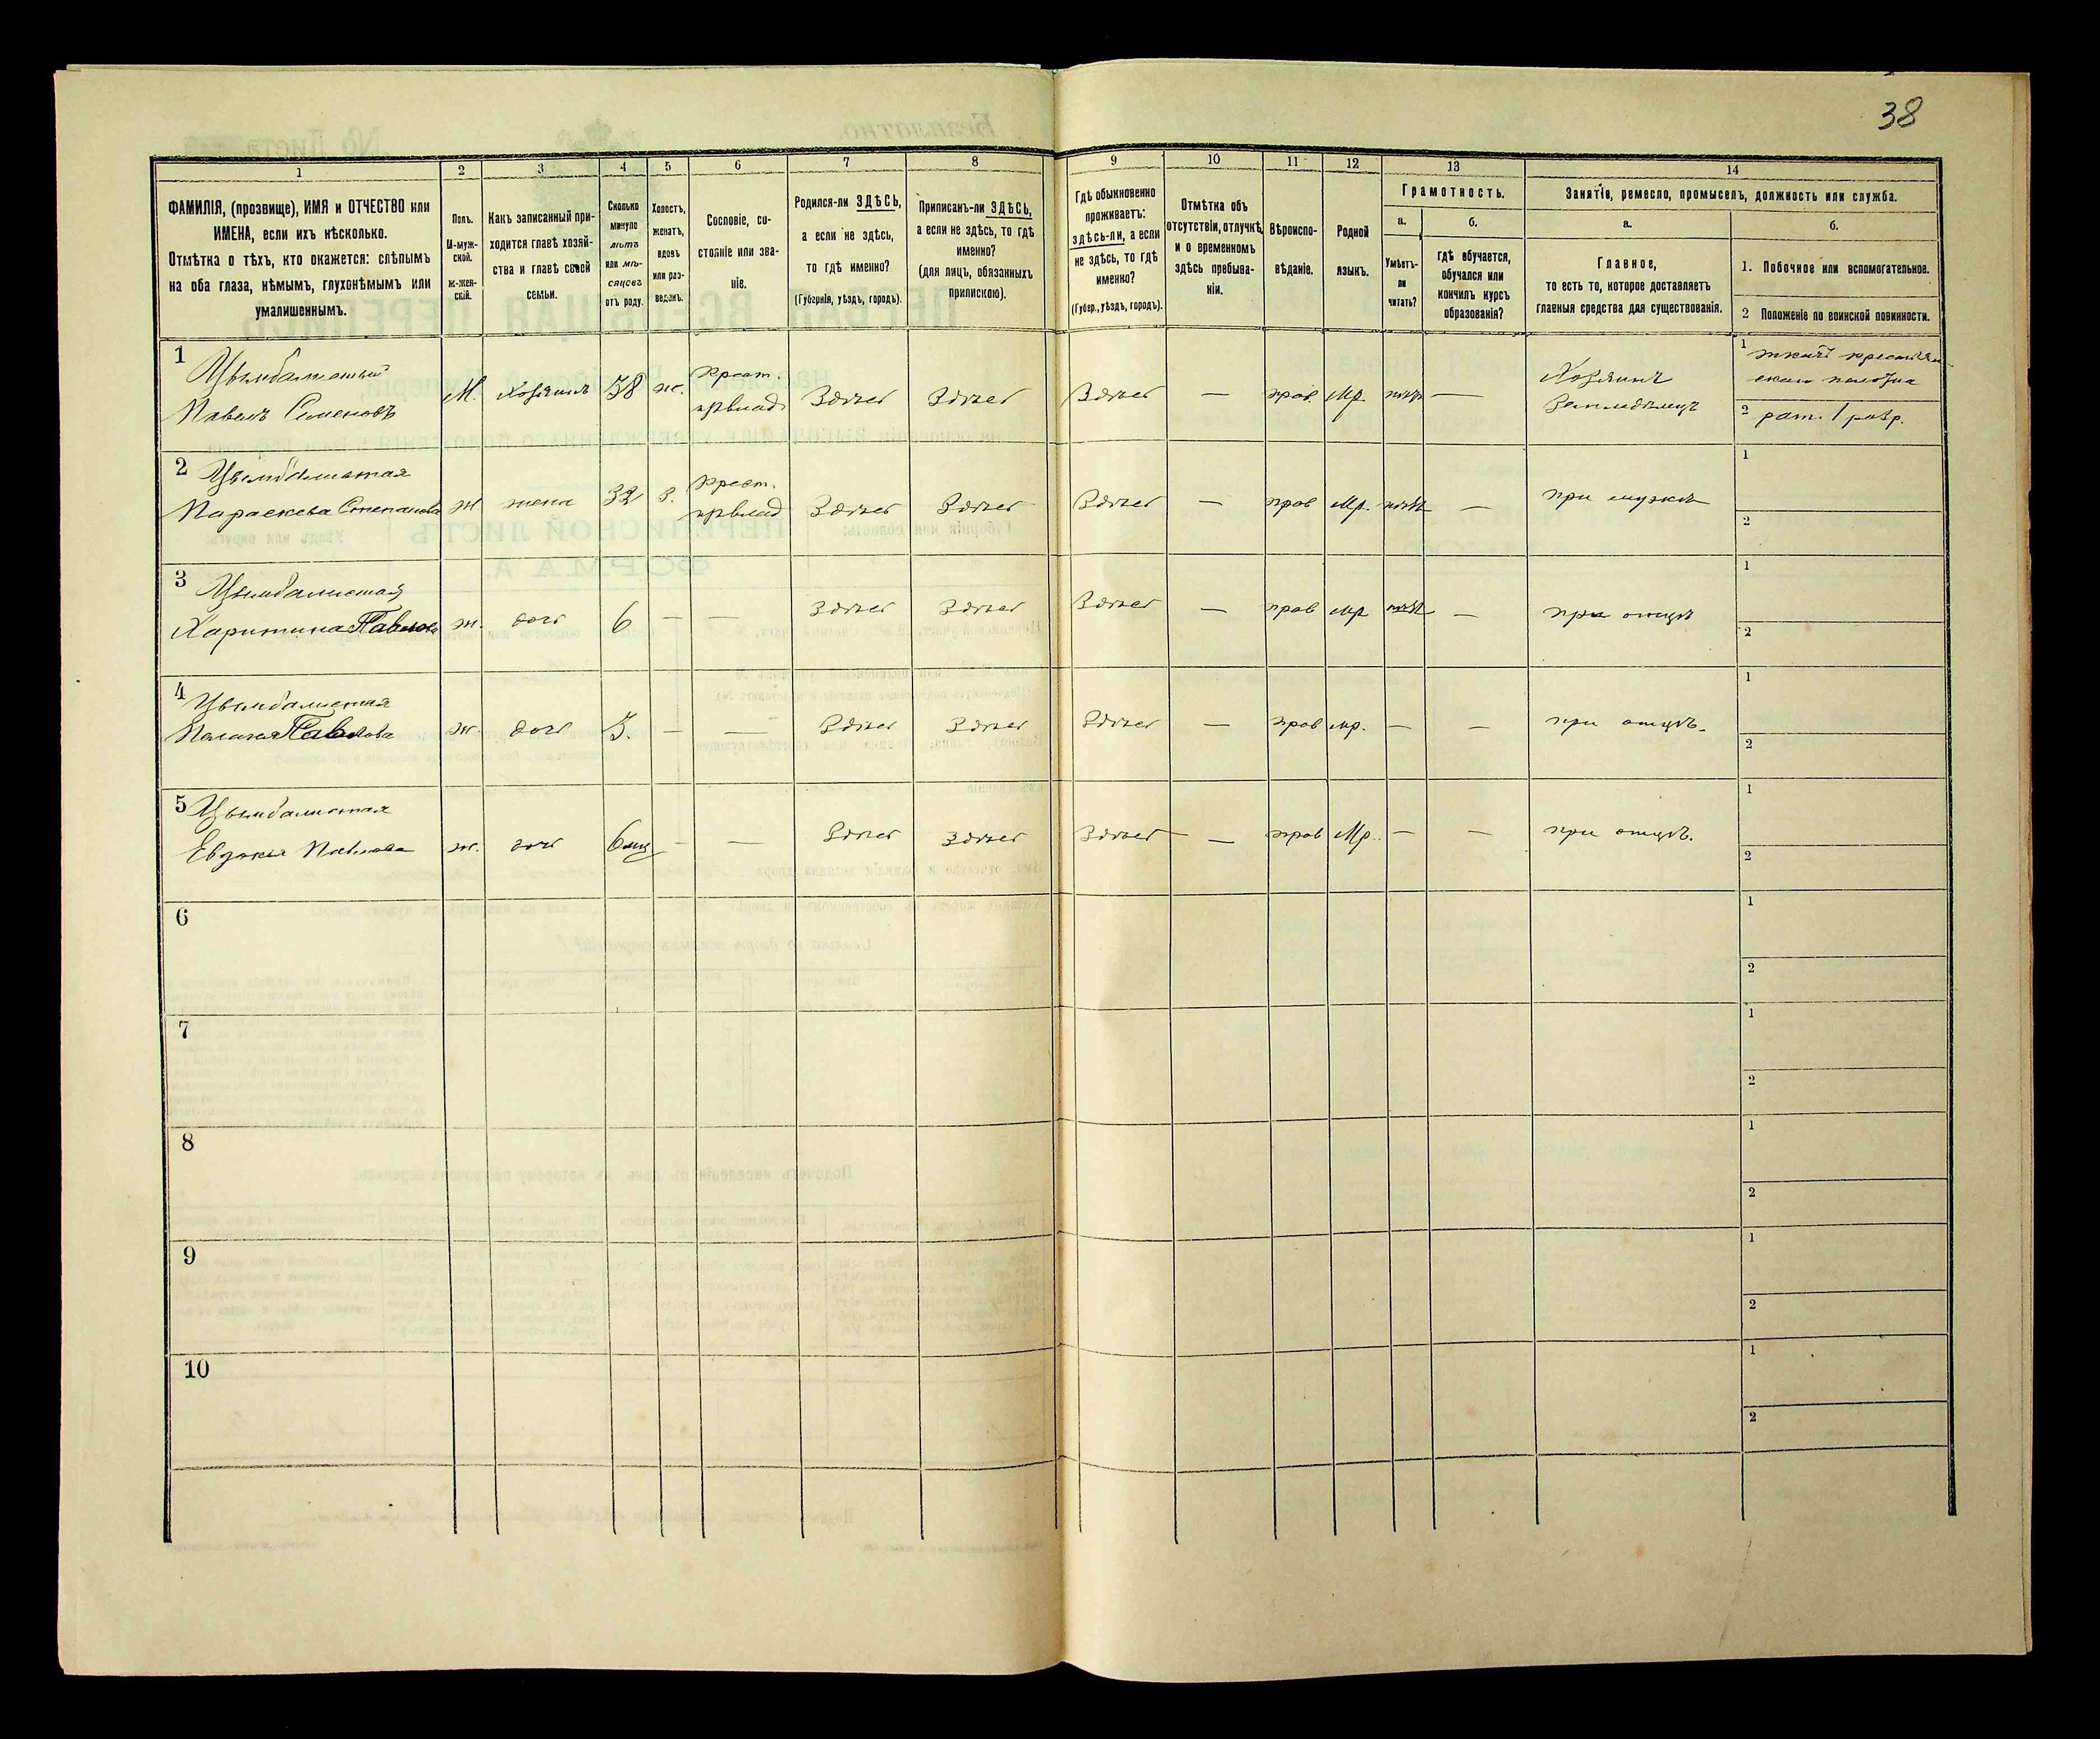 38
1
2
3
4
5
6
7
8
9
10
11
12
13
14
ФАМИЛІЯ, (прозвище), ИМЯ и ОТЧЕСТВО или
ИМЕНА, если ихъ нѣсколько.
Отмѣтка о тѣхъ, кто окажется: слѣпымъ
на оба глаза, нѣмымъ, глухонѣмымъ или
умалишеннымъ.
Полъ.
М-муж-
ской.
ж-жен-
скій.
Какъ записанный при-
ходится главѣ хозяй-
ства и главѣ своей
семьи.
Сколько
минуло
лѣтъ
или мѣ-
сяцевъ
отъ роду.
Холостъ,
женатъ,
вдовъ
или раз-
веденъ.
Сословіе, со-
стояніе или зва-
ніе.
Родился-ли ЗДѢСЬ,
а если не здѣсь,
то гдѣ именно?
(Губернія, уѣздъ, городъ).
Приписанъ-ли ЗДѢСЬ,
а если не здѣсь, то гдѣ
именно?
(для лицъ, обязанныхъ
припискою).
Гдѣ обыкновенно
проживаетъ:
здѣсь-ли, а если
не здѣсь, то гдѣ
именно?
(Губер., уѣздъ, городъ).
Отмѣтка объ
отсутствіи, отлучкѣ
и о временномъ
здѣсь пребыва-
ніи.
Вѣроиспо-
вѣданіе.
Родной
языкъ.
Грамотность.
а.
Умѣетъ-
ли
читать?
б.
гдѣ обучается,
обучался или
кончилъ курсъ
образованія?
Занятіе, ремесло, промыселъ, должность или служба.
а.
Главное,
то есть то, которое доставляетъ
главныя средства для существованія.
б.
1. Побочное или вспомогательное.
2 Положеніе по воинской повинности.
1
Цымбалистый
Павелъ Семеновъ
М. Хозяинъ 38 ж.
Крест.
Здѣсь Здѣсь Здѣсь — прав. Мр. —
Хозяинъ
Земледѣлецъ
1
полотна
2 рат. 1 разр.
2
Цымбалистая
Параскева Степанова
ж. жена 32 з.
Крест.
Здѣсь Здѣсь Здѣсь — прав Мр. — при мужѣ
1
2
3
Цымбалистая
Харитина Павлова
ж. дочь 6 — — Здѣсь Здѣсь Здѣсь — прав мр — при отцѣ
1
2
4
Цымбалистая
Павлова
ж. дочь 3. — — Здѣсь Здѣсь Здѣсь — прав мр. — — при отцѣ.
1
2
5
Цымбалистая
Евдокія Павлова
ж. дочь 6 мц — — Здѣсь Здѣсь Здѣсь — прав Мр. — — при отцѣ.
1
2
6
1
2
7
1
2
8
1
2
9
1
2
10
1
2